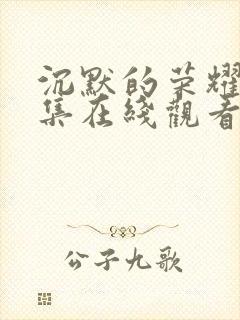 沉默的荣耀
集在綫觀看
公子九歌